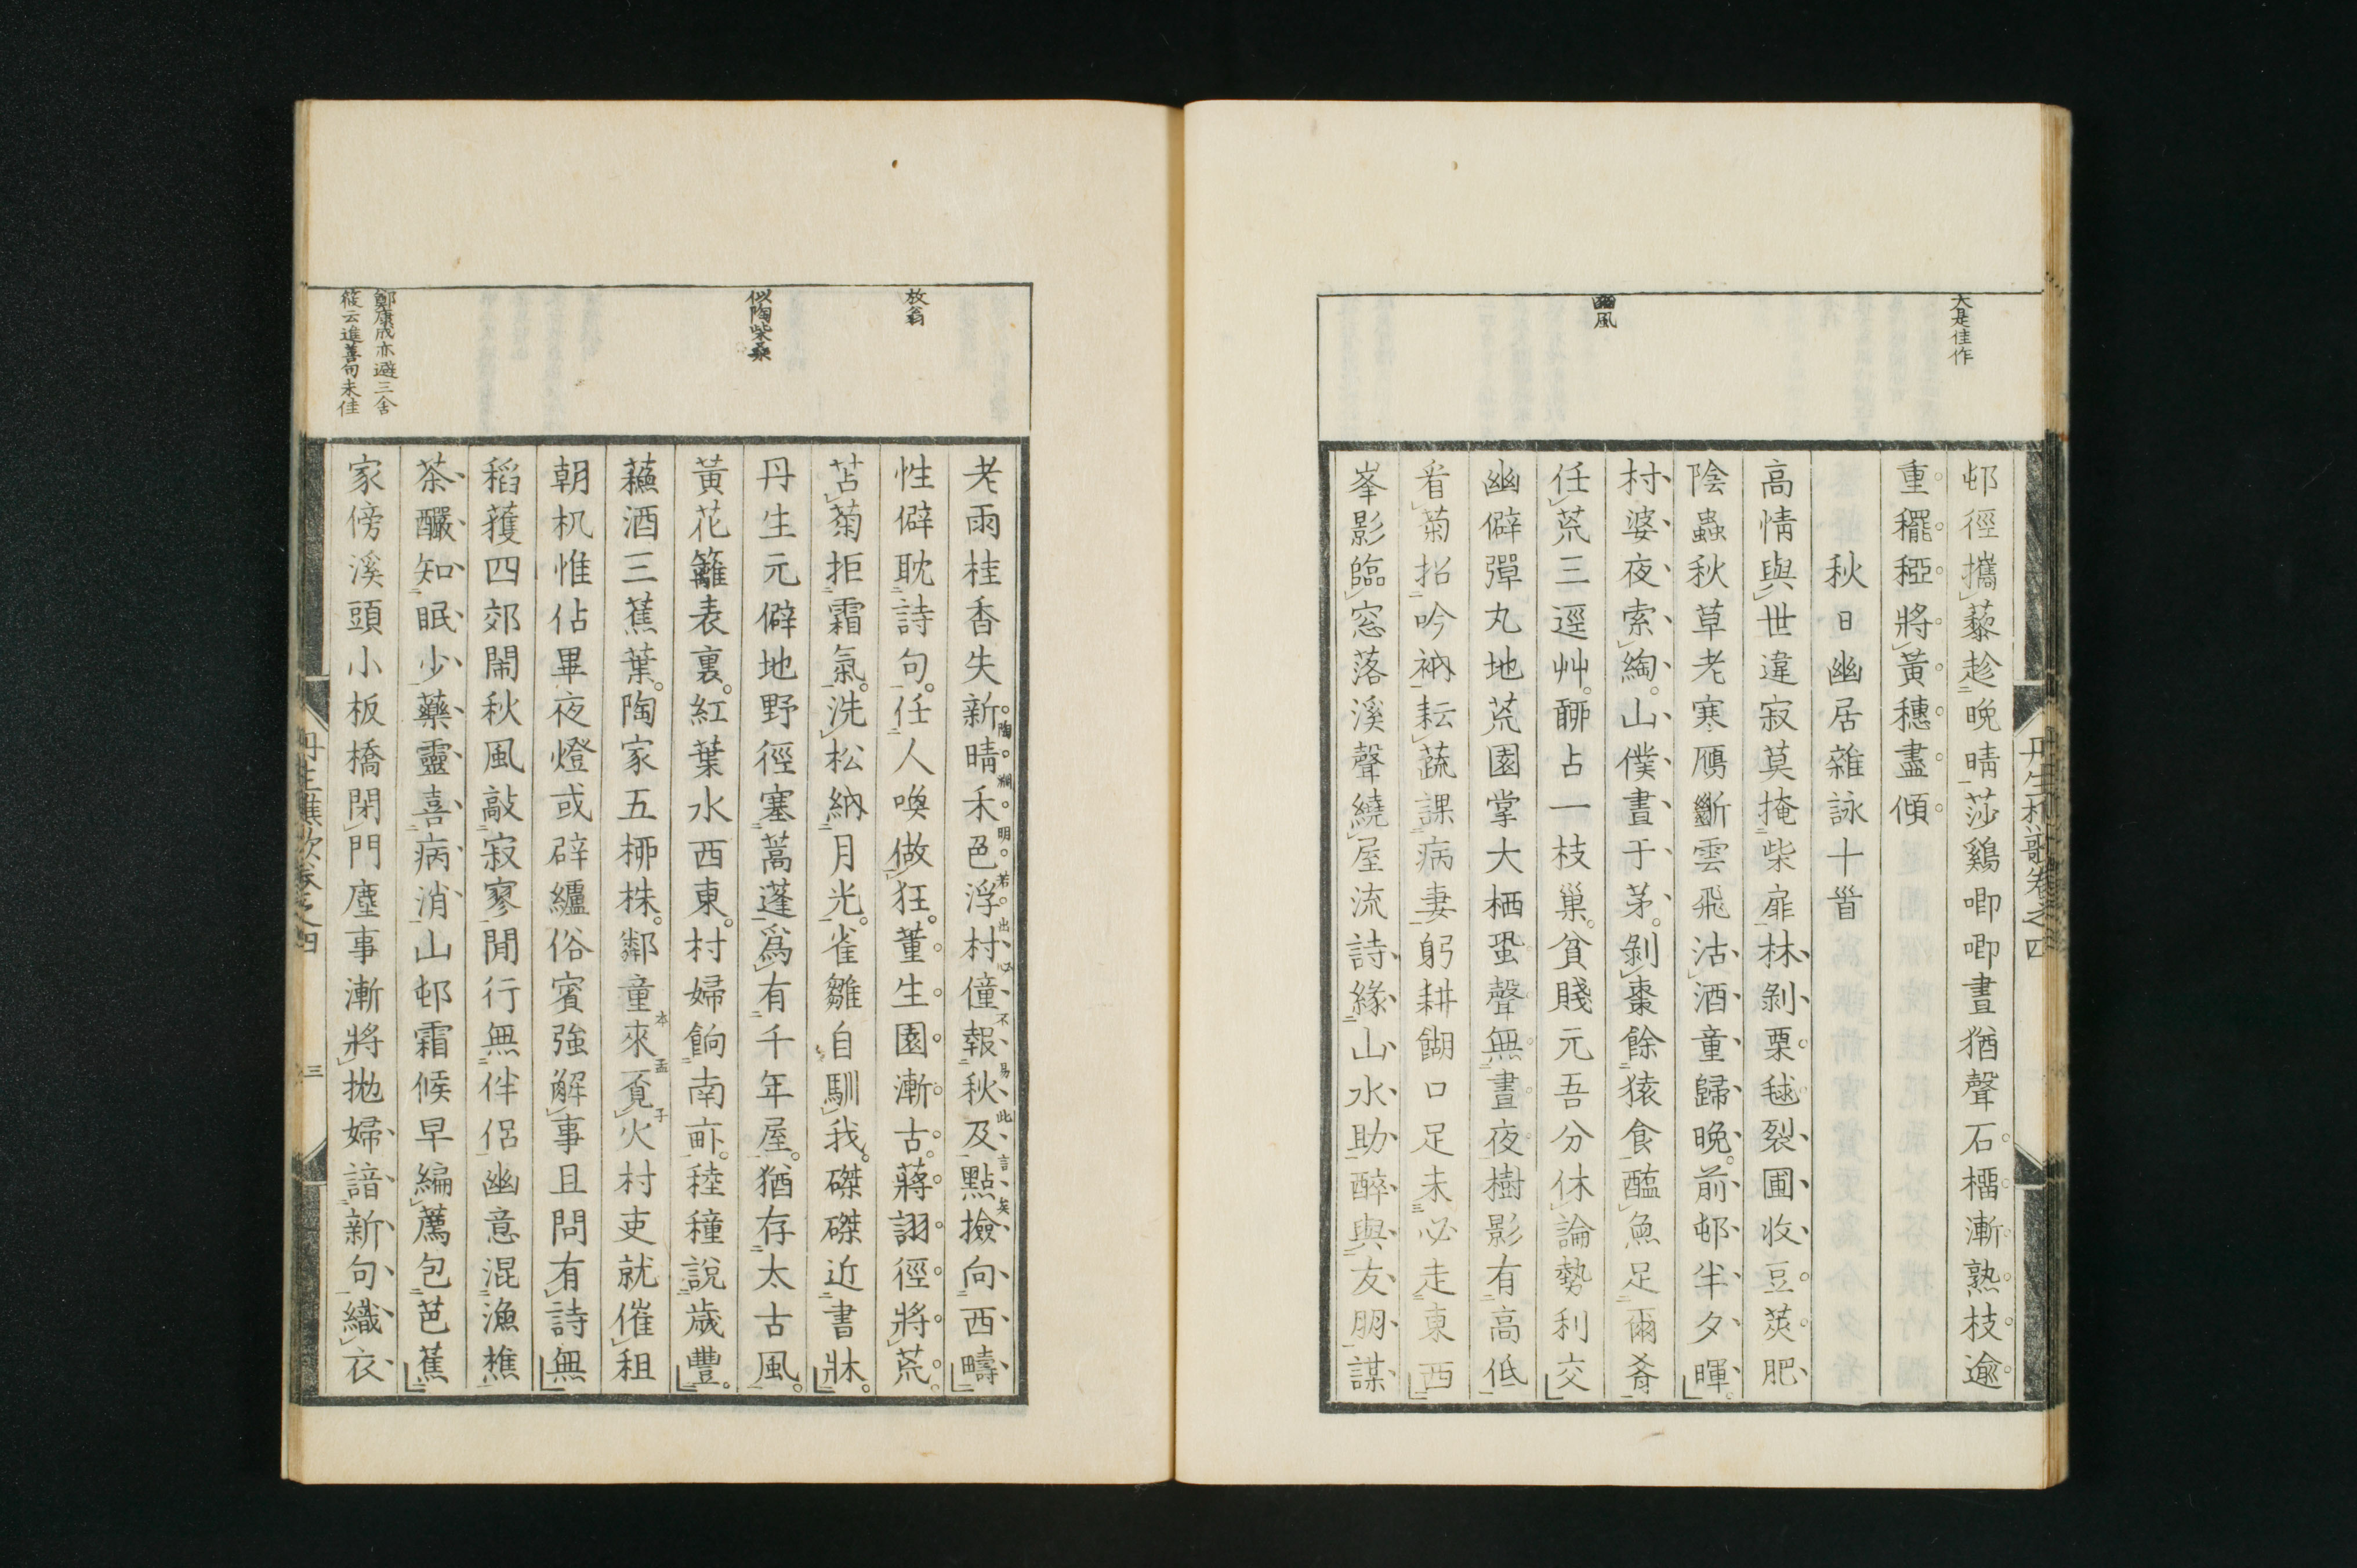 大是佳作
豳風
邨徑攜藜趁晚晴莎鷄喞喞晝猶聲石榴漸熟枝逾
重䆉稏將黃穗盡傾
秋日幽居雜詠十首
高情與世違寂莫掩柴扉林剝栗毬裂圃收豆莢肥
陰蟲秋草老寒鴈斷雲飛沽酒童歸晚前邨半夕暉
村婆夜索綯山僕晝于茅剝棗餘猿食醢魚足爾肴
任荒三逕艸聊占一枝巢貧賤元吾分休論勢利交
幽僻彈丸地荒園掌大栖蛩聲無晝夜樹影有高低
看菊招吟衲耘蔬課病妻躬耕餬口足未必走東西
峯影臨窓落溪聲繞屋流詩緣山水助醉與友朋謀
丹生樵歌卷之四
放翁
似陶柴桑
鄭康成亦避三舍
筱云進善句未佳
老雨桂香失新晴禾色浮村僮報秋及點撿向西疇
陶淵明若出必不易此言矣
性僻耽詩句任人喚做狂董生園漸古蔣詡徑將荒
苫菊拒霜氣洗松納月光雀雛自馴我磔磔近書牀
丹生元僻地野徑塞蒿蓬爲有千年屋猶存太古風
黃花籬表裏紅葉水西東村婦餉南畝稑穜說歲豐
蘸酒三蕉葉陶家五柳株鄰童來覔火村吏就催租
本孟子
朝机惟佔畢夜燈或辟纑俗賓強解事且問有詩無
稻穫四郊閙秋風敲寂寥閒行無伴侶幽意混漁樵
茶釅知眠少藥靈喜病消山邨霜候早編薦包芭蕉
家傍溪頭小板橋閉門塵事漸將拋婦諳新句織衣
丹生樵歌卷之四
三